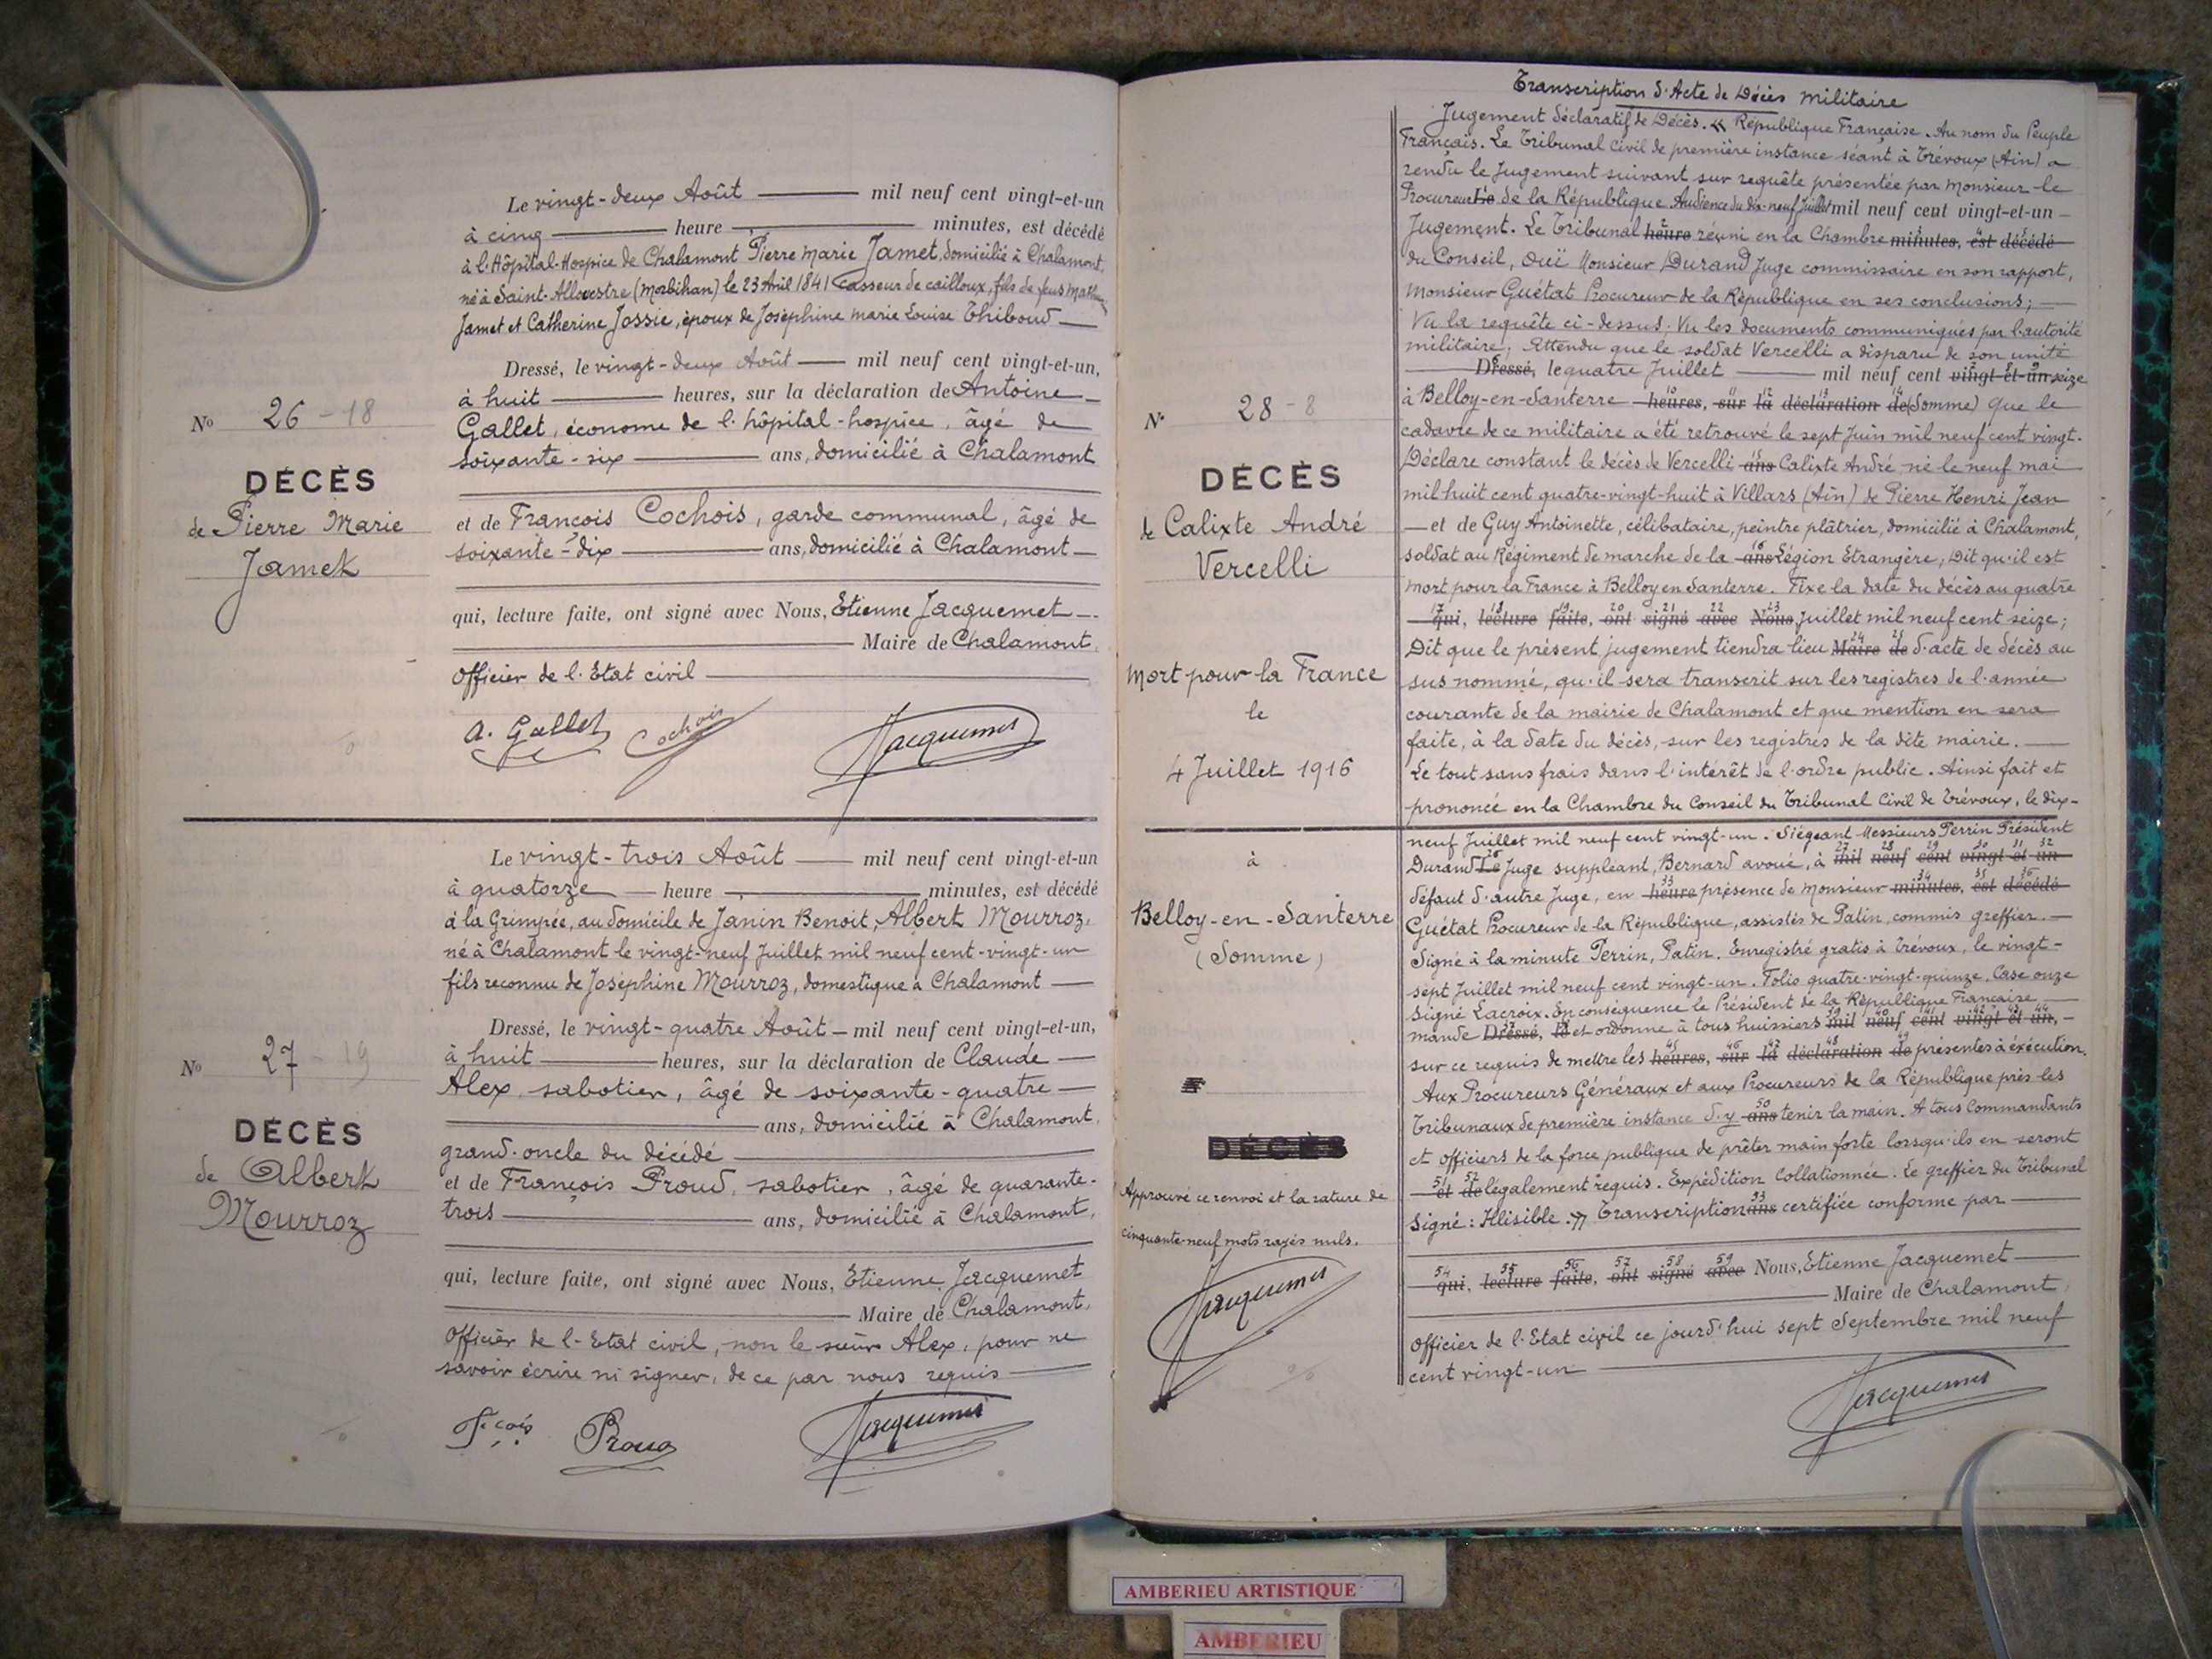 Le vingt-deux Août mil neuf cent vingt-et-un
à cinq heure minutes, est décédé
à l'Hôpital-Hospice de Chalamont Pierre Marie Jamet, domicilié à Chalamont,
né à Saint-Allouestre (Morbihan) le 23 Avril 1841 Casseur de cailloux, fils de feus
Jamet et Catherine Jossie, époux de Joséphine Marie Louise Thiboud
Dressé, le vingt-deux Août mil neuf cent vingt-et-un,
à huit heures, sur la déclaration de Antoine
Gallet, économe de l'hôpital-hospice, âgé de
soixante-six ans, domicilié à Chalamont
et de François Cochois, garde communal, âgé de
soixante-dix ans, domicilié à Chalamont
qui, lecture faite, ont signé avec Nous, Etienne Jacquemet
Maire de Chalamont,
Officier de l'Etat civil
A. Gallet Cochois Jacquemet
No 26-18
DÉCÈS
de Pierre Marie
Jamet
Le vingt-trois Août mil neuf cent vingt-et-un
à quatorze heure minutes, est décédé
à la Grimpée, au domicile de Janin Benoit, Albert Mourroz,
né à Chalamont le vingt-neuf Juillet mil neuf cent-vingt-un
fils reconnu de Joséphine Mourroz, domestique à Chalamont
Dressé, le vingt-quatre Août mil neuf cent vingt-et-un,
à huit heures, sur la déclaration de Claude
Alex, sabotier, âgé de soixante-quatre
ans, domicilié à Chalamont,
grand-oncle du décédé
et de François Proud, sabotier, âgé de quarante-
trois ans, domicilié à Chalamont,
qui, lecture faite, ont signé avec Nous, Etienne Jacquemet
Maire de Chalamont,
Officier de l'Etat civil, non le sieur Alex, pour ne
savoir écrire ni signer, de ce par nous requis
Fçois Proud Jacquemet
No 27-19
DÉCÈS
de Albert
Mourroz
Transcription d'Acte de Décès Militaire
Jugement déclaratif de Décès. « République Française. Au nom du Peuple
Français. Le Tribunal Civil de première instance séant à Trévoux (Ain) a
rendu le Jugement suivant sur requête présentée par Monsieur le
Procureur Le de la République. Audience du dix-neuf Juillet mil neuf cent vingt-et-un
Jugement. Le Tribunal heure réuni en la Chambre minutes, est décédé
du Conseil, Ouï Monsieur Durand Juge commissaire en son rapport,
Monsieur Guétat Procureur de la République en ses conclusions;
Vu la requête ci-dessus; Vu les documents communiqués par l'autorité
militaire; Attendu que le soldat Vercelli a disparu de son unité
Dressé, le quatre Juillet mil neuf cent vingt-et-un seize
à Belloy-en-Santerre heures, sur la déclaration de (Somme) Que le
cadavre de ce militaire a été retrouvé le sept Juin mil neuf cent vingt.
Déclare constant le décès de Vercelli ans Calixte André né le neuf mai
mil huit cent quatre-vingt-huit à Villars (Ain) de Pierre Henri Jean
et de Guy Antoinette, célibataire, peintre plâtrier, domicilié à Chalamont,
soldat au Régiment de marche de la ans Légion Etrangère; Dit qu'il est
mort pour la France à Belloy en Santerre. Fixe la date du décès au quatre
qui, lecture faite, ont signé avec Nous, Juillet mil neuf cent seize;
Dit que le présent jugement tiendra lieu Maire de d'acte de décès au
sus nommé, qu'il sera transcrit sur les registres de l'année
courante de la mairie de Chalamont et que mention en sera
faite, à la date du décès, sur les registres de la dite mairie.
Le tout sans frais dans l'intérêt de l'ordre public. Ainsi fait et
prononcé en la Chambre du Conseil du Tribunal Civil de Trévoux, le dix-
neuf Juillet mil neuf cent vingt-un. Siégeant Messieurs Perrin Président
Durand Le Juge suppléant, Bernard avoué, à mil neuf cent vingt et un
défaut d'autre Juge, en heure présence de Monsieur minutes, est décédé
Guétat Procureur de la République, assistés de Patin, commis greffier.
Signé à la minute Perrin, Patin. Enregistré gratis à Trévoux, le vingt-
sept Juillet mil neuf cent vingt-un. Folio quatre-vingt-quinze. Case onze
Signé Lacroix. En conséquence le Président de la République Française
mande Dressé, le et ordonne à tous huissiers mil neuf cent vingt et un,
sur ce requis de mettre les heures, sur la déclaration de présentes à éxécution.
Aux Procureurs Généraux et aux Procureurs de la République près les
Tribunaux de première instance d'y ans tenir la main. A tous Commandants
et officiers de la force publique de prêter main forte lorsqu'ils en seront
et de légalement requis. Expédition Collationnée. Le greffier du Tribunal
Signé: Illisible. » Transcription ans certifiée conforme par
qui, lecture faite, ont signé avec Nous, Etienne Jacquemet
Maire de Chalamont,
Officier de l'Etat civil ce jourd'hui sept Septembre mil neuf
cent vingt-un
Jacquemet
No 28-8
DÉCÈS
de Calixte André
Vercelli
Mort pour la France
le
4 Juillet 1916
à
Belloy-en-Santerre
(Somme)
DÉCÈS
Approuvé ce renvoi et la rature de
cinquante-neuf mots rayés nuls.
Jacquemet
AMBERIEU ARTISTIQUE
AMBERIEU